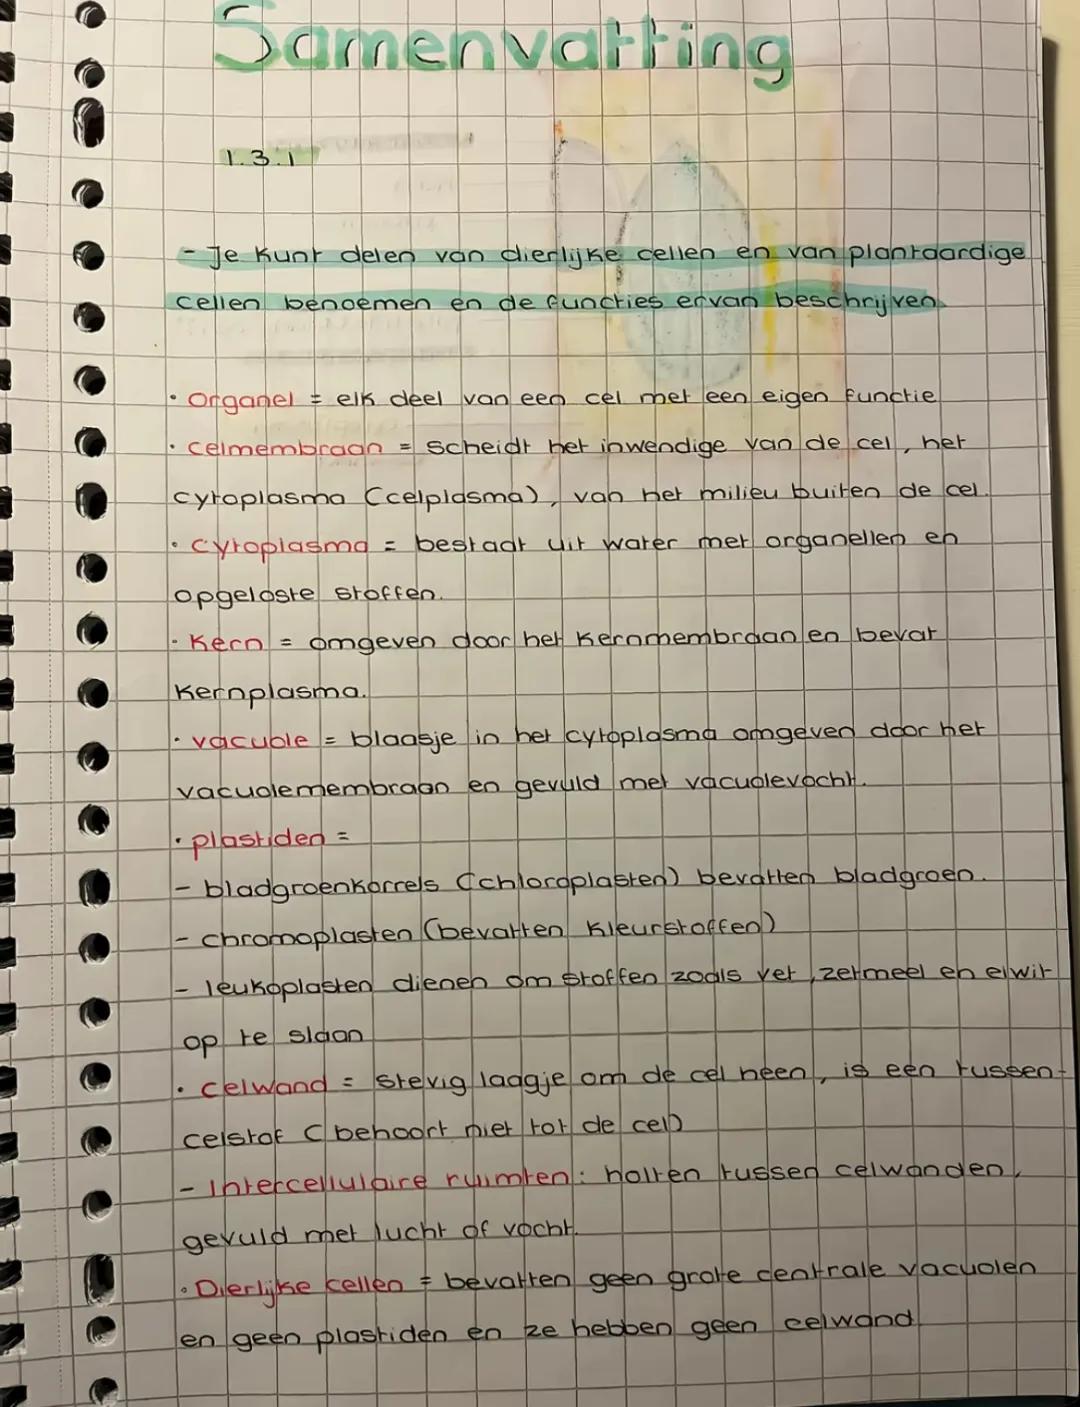 Samenvatting
1.3.1
- Je kunt delen van dierlijke cellen en van plantaardige
cellen benoemen en de functies ervan beschrijven.
• Organel = elk deel van een cel met een eigen functie
• celmembraan = scheidt het inwendige van de cel, het
cytoplasma (celplasma), van het milieu buiten de cel.
• cytoplasma = bestaat uit water met organellen en
opgeloste stoffen.
• Kern = omgeven door het kernmembraan en bevat
kernplasma.
• vacuole = blaasje in het cytoplasma omgeven door het
vacuolemembraan en gevuld met vacuolevocht.
• plastiden =
- bladgroenkorrels (chloroplasten) bevatten bladgroen.
- chromoplasten (bevatten kleurstoffen)
- leukoplasten dienen om stoffen zoals vet, zetmeel en eiwit
op te slaan
• celwand = stevig laagje om de cel heen, is een tussen-
celstof (behoort niet tot de cel)
- Intercellulaire ruimten: holten tussen celwanden,
gevuld met lucht of vocht.
• Dierlijke cellen = bevatten geen grote centrale vacuolen
en geen plastiden en ze hebben geen celwand